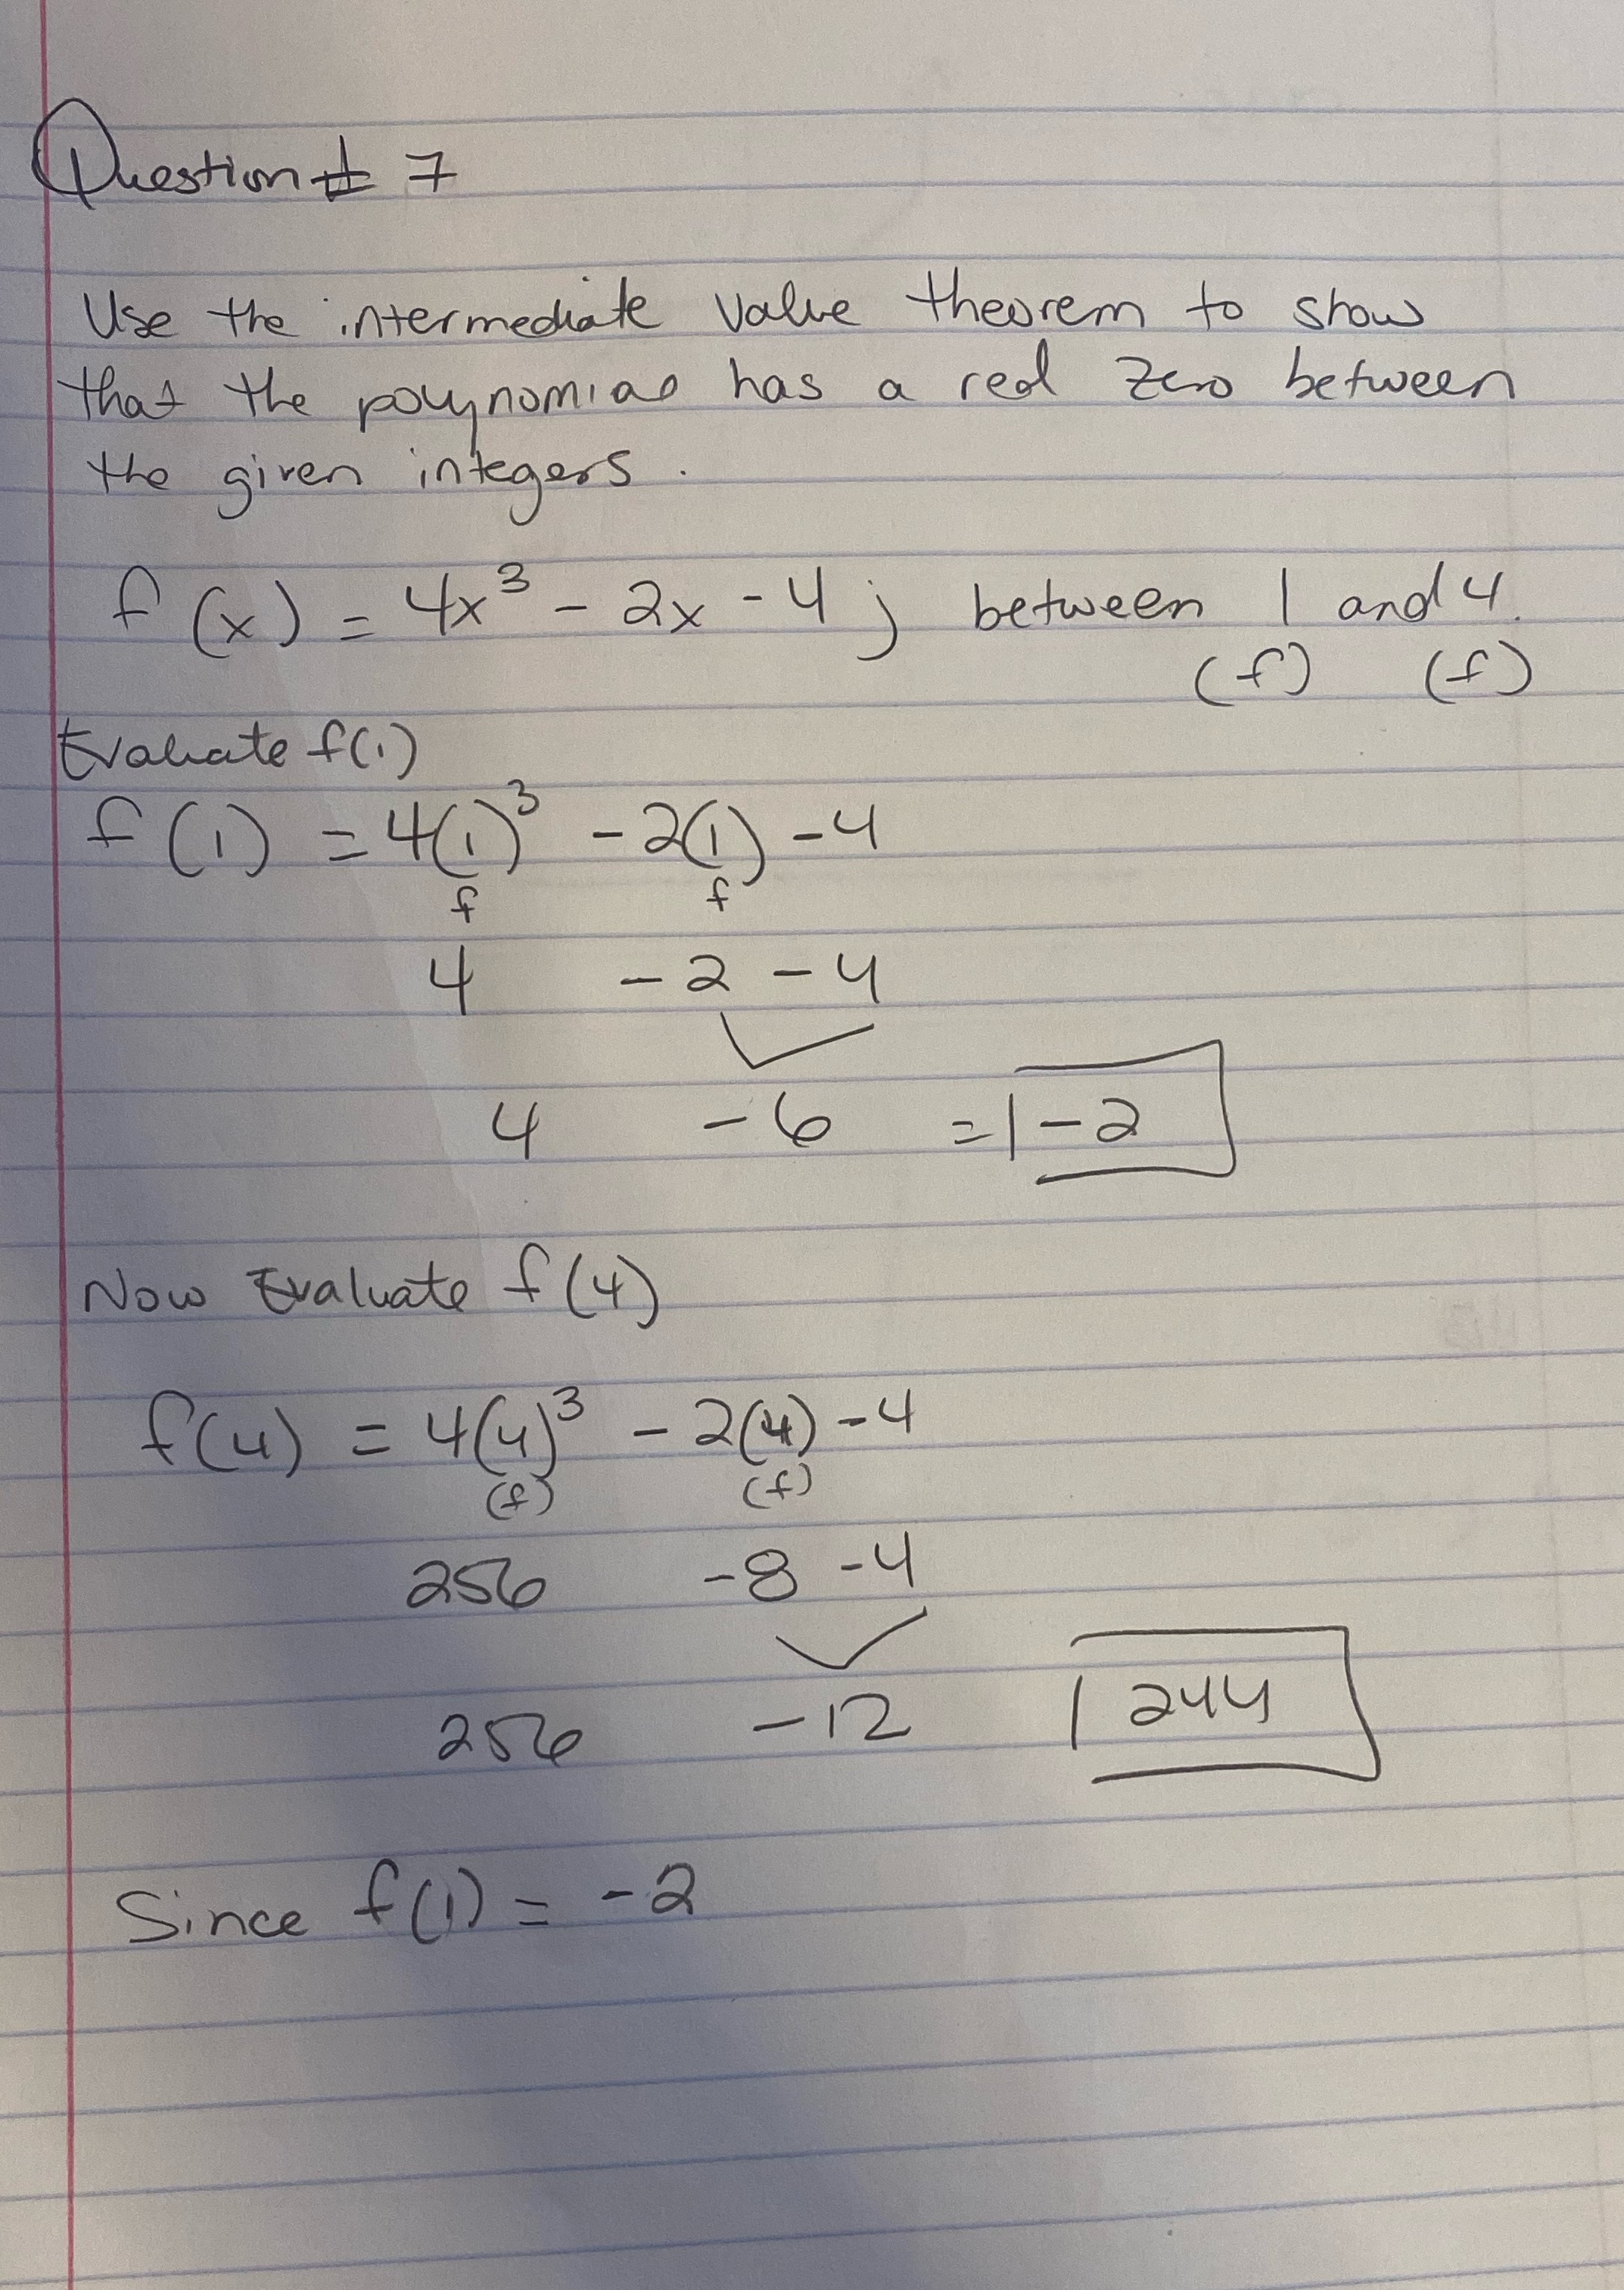 Question # 7
Use the intermediate value theorem to show
that the polynomial has a real zero between
the given integers.
f(x) = 4x³ - 2x - 4; between 1 and 4.
(f) (f)
Evaluate f(1)
f(1) = 4(1)³ - 2(1) - 4
f f
4 - 2 - 4
4 - 6 = -2
Now Evaluate f(4)
f(4) = 4(4)³ - 2(4) - 4
(f) (f)
256 - 8 - 4
256 - 12 244
Since f(1) = -2